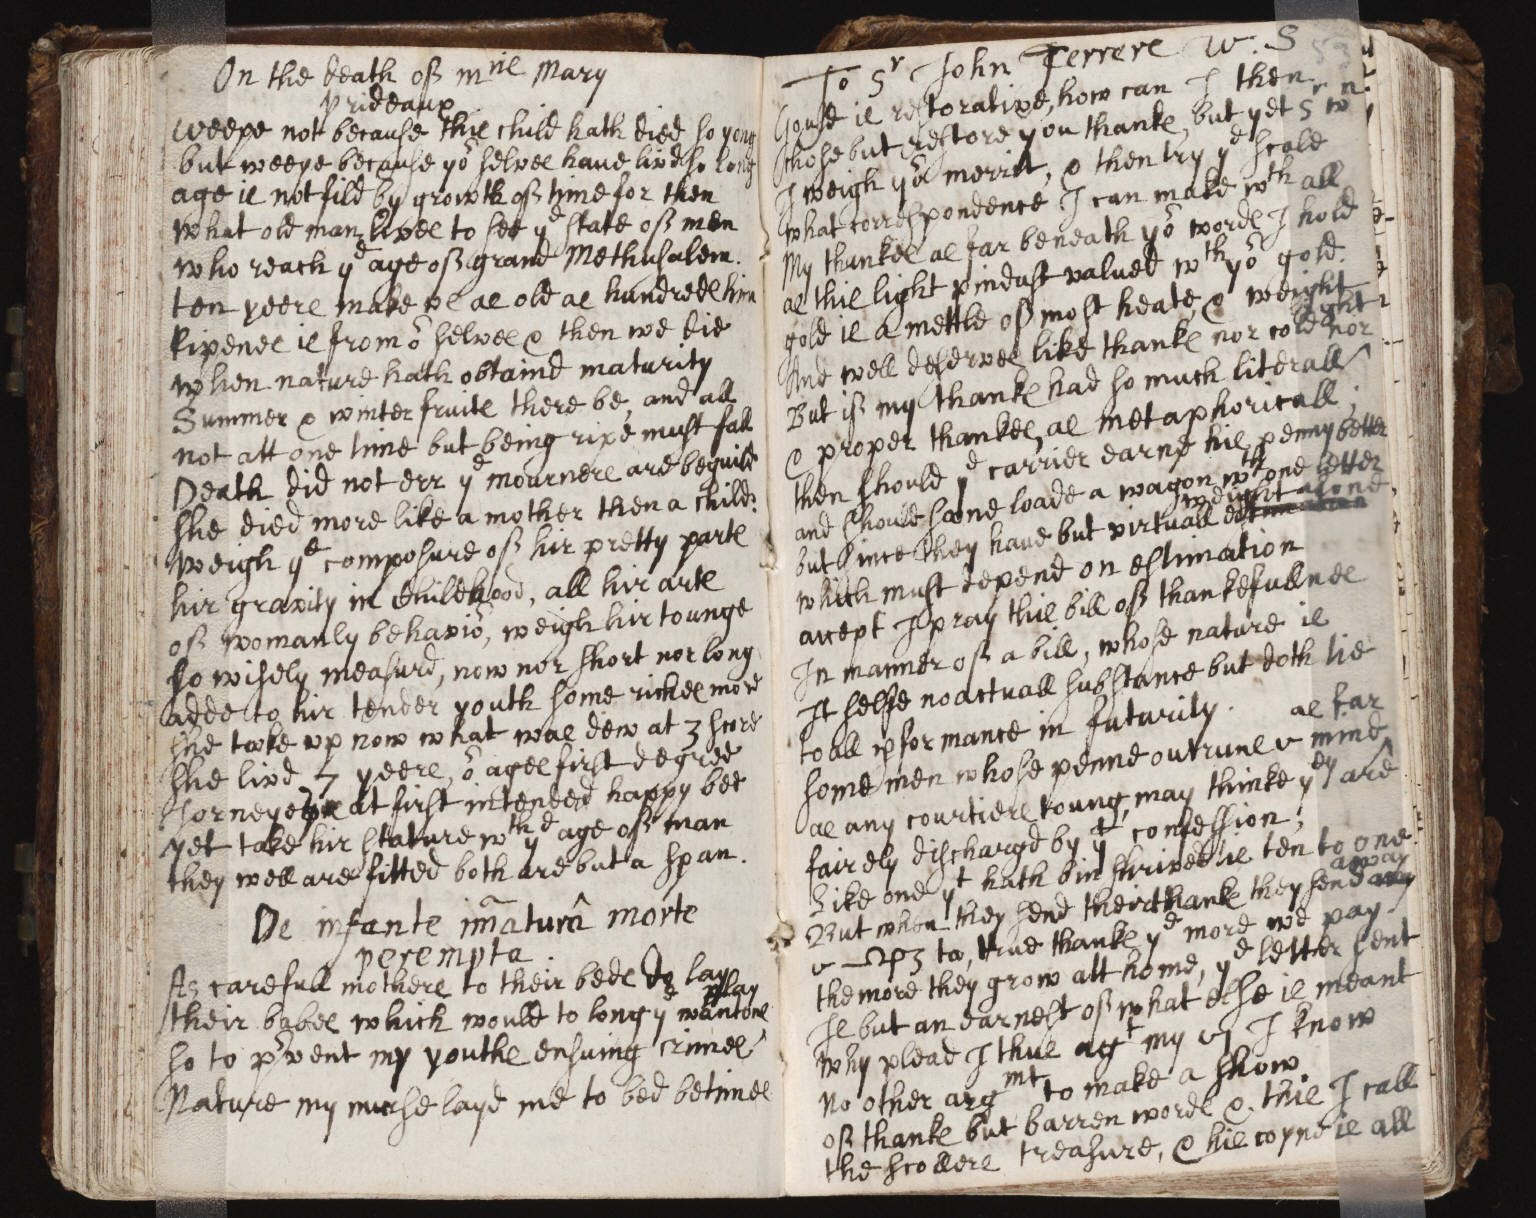 On the death of mris Mary
Prideaux
Weepe not because this child hath died so yong
but weepe because yor selves have livd so long
age is not fild by growth of time for then
what old man lives to see ye state of men
who reach ye age of grand Methusalem.
ten yeers make vs as old as hundreds him
Ripenes is from or selves & then we die
when nature hath obtaind maturity
Summer & winter fruits there be, and all
not att one time but being ripe must fall
Death did not err ye mourners are beguild
she died more like a mother then a child:
weigh ye composure of hir pretty parts
hir gravity in childhood, all hir arts
of womanly behavior, weigh hir tounge
so wisely measurd, now nor short nor long
adde to hir tender youth some riches more
she tooke vp now what was dew at 3 score
she livd 7 yeers, or ages first degree
Jorneyes at first intended happy bee
yet take hir stature wth ye age of man
they well are fitted both are but a span.
De infante im̄aturâ morte
perempta
As carefull mothers to their beds do lay
their babes which would to long ye wantons play
so to pr vent my youths ensuing crimes
Nature my nurse layd me to bed betimes
To Sr John Ferrers W. S
Gould is restorative, how can I then
chose but restore you thanks, but yet Sr wn
I weigh yor merrit, & then try ye scole
what correspondence I can make wth all
My thankes as far beneath yor words I hold
as this light pindust valued wth yor gold.
gold is a mettle of most heate, & weight
And well deserves like thanks nor cold nor light
But if my thanks had so much literall
& proper thankes, as metaphoricall;
then should ye carrier earne his penny better
and should soone loade a wagon wth one letter
but since they have but virtuall weight alone
which must depend on estimation
accept I pray this bill of thankefullnes
In manner of a bill, whose nature is
It selfe no actuall substance but doth lie
to all pformance in futurity.
some men whose penns outruns ye mind as far
as any courtiers toung, may thinke yey are
fairely dischargd by yt confession;
Like one yt hath bin shrived is ten to one.
But when they send their thanks they send away
to, true thanks ye more we pay
the more they grow att home, ye letter sent
Is but an earnest of what else is meant
Why plead I thus agt my I know
No other argmt to make a show
of thanks but barren words & this I call
the scollers treasure, & his coyne is all